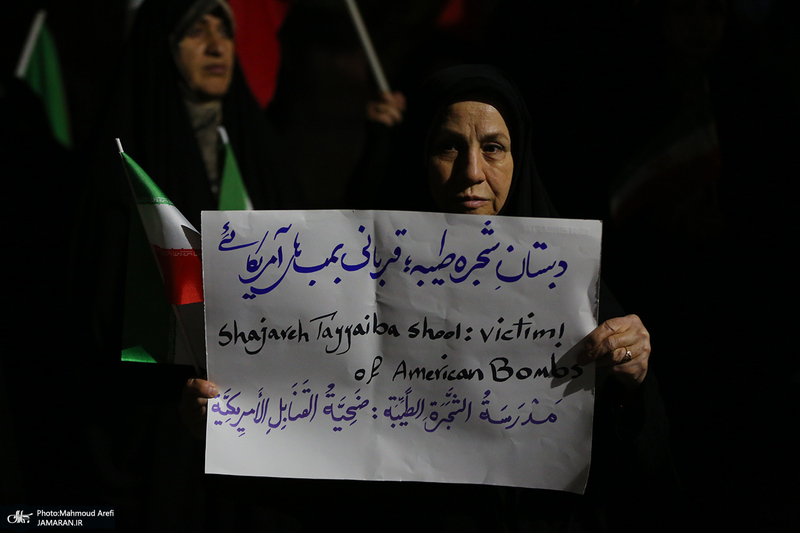 دبستانِ شجره طیبه؛ قربانی بمب های آمریکائی
Shajareh Tayyaiba shool: victim!
of American Bombs
مَدرَسَةُ الشَّجَرَةِ الطَّیِّبَة : ضَحِیَّةُ القَنَابِلِ الأَمِریکِیَّة
Photo:Mahmoud Arefi
JAMARAN.IR